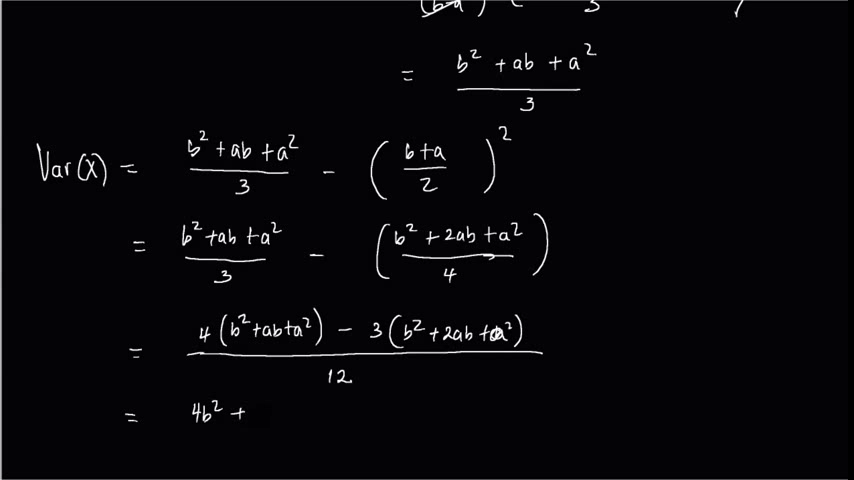 = b² + ab + a² / 3
Var(X) = b² + ab + a² / 3 − ( b+a / 2 )²
= b² + ab + a² / 3 − ( b² + 2ab + a² / 4 )
= 4(b² + ab + a²) − 3(b² + 2ab + a²) / 12
= 4b² +